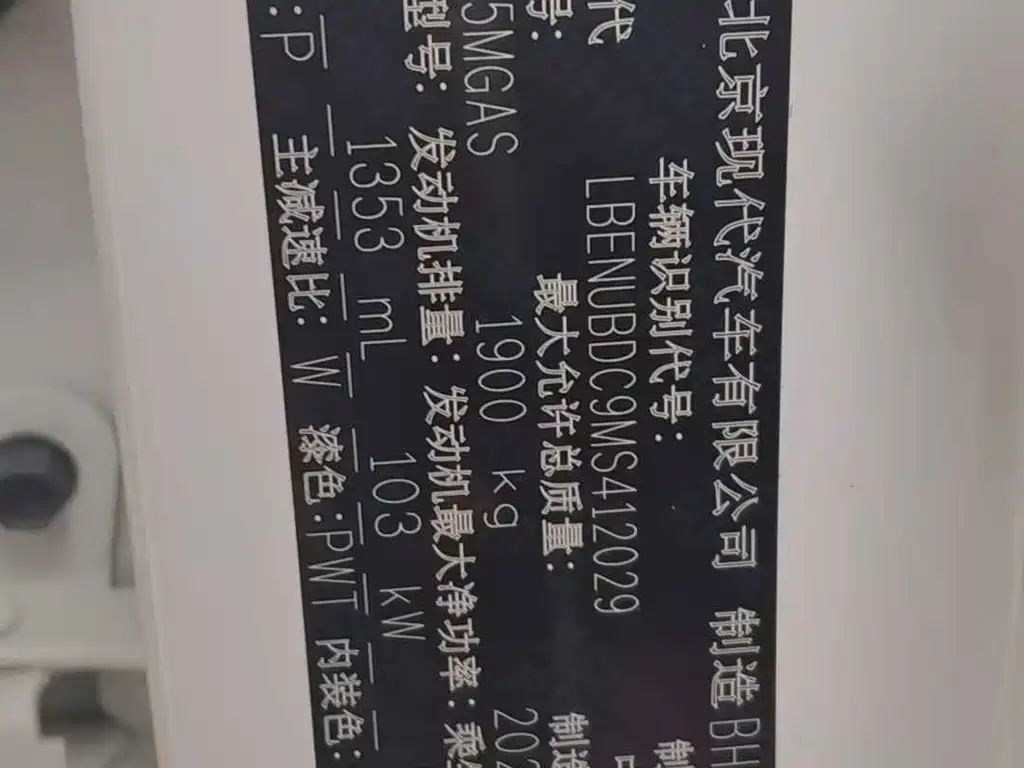 北京现代汽车有限公司 制造 BH
车辆识别代号: 制
代 LBENUBDC9MS412029
号: 最大允许总质量: 制造
5MGAS 1900 kg 202
型号: 发动机排量: 发动机最大净功率: 乘
1353 mL 103 kW
:P 主减速比: W 漆色:PWT 内装色: